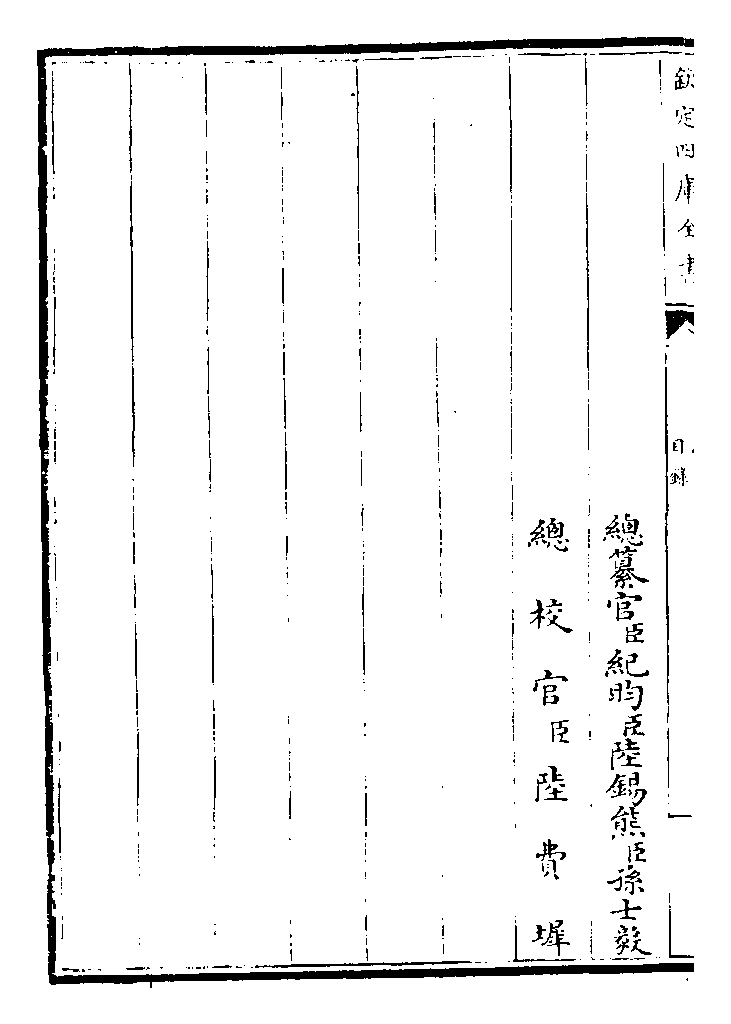 欽定四庫全書
目錄
總纂官臣紀昀臣陸錫熊臣孫士毅
總校官臣陸費墀